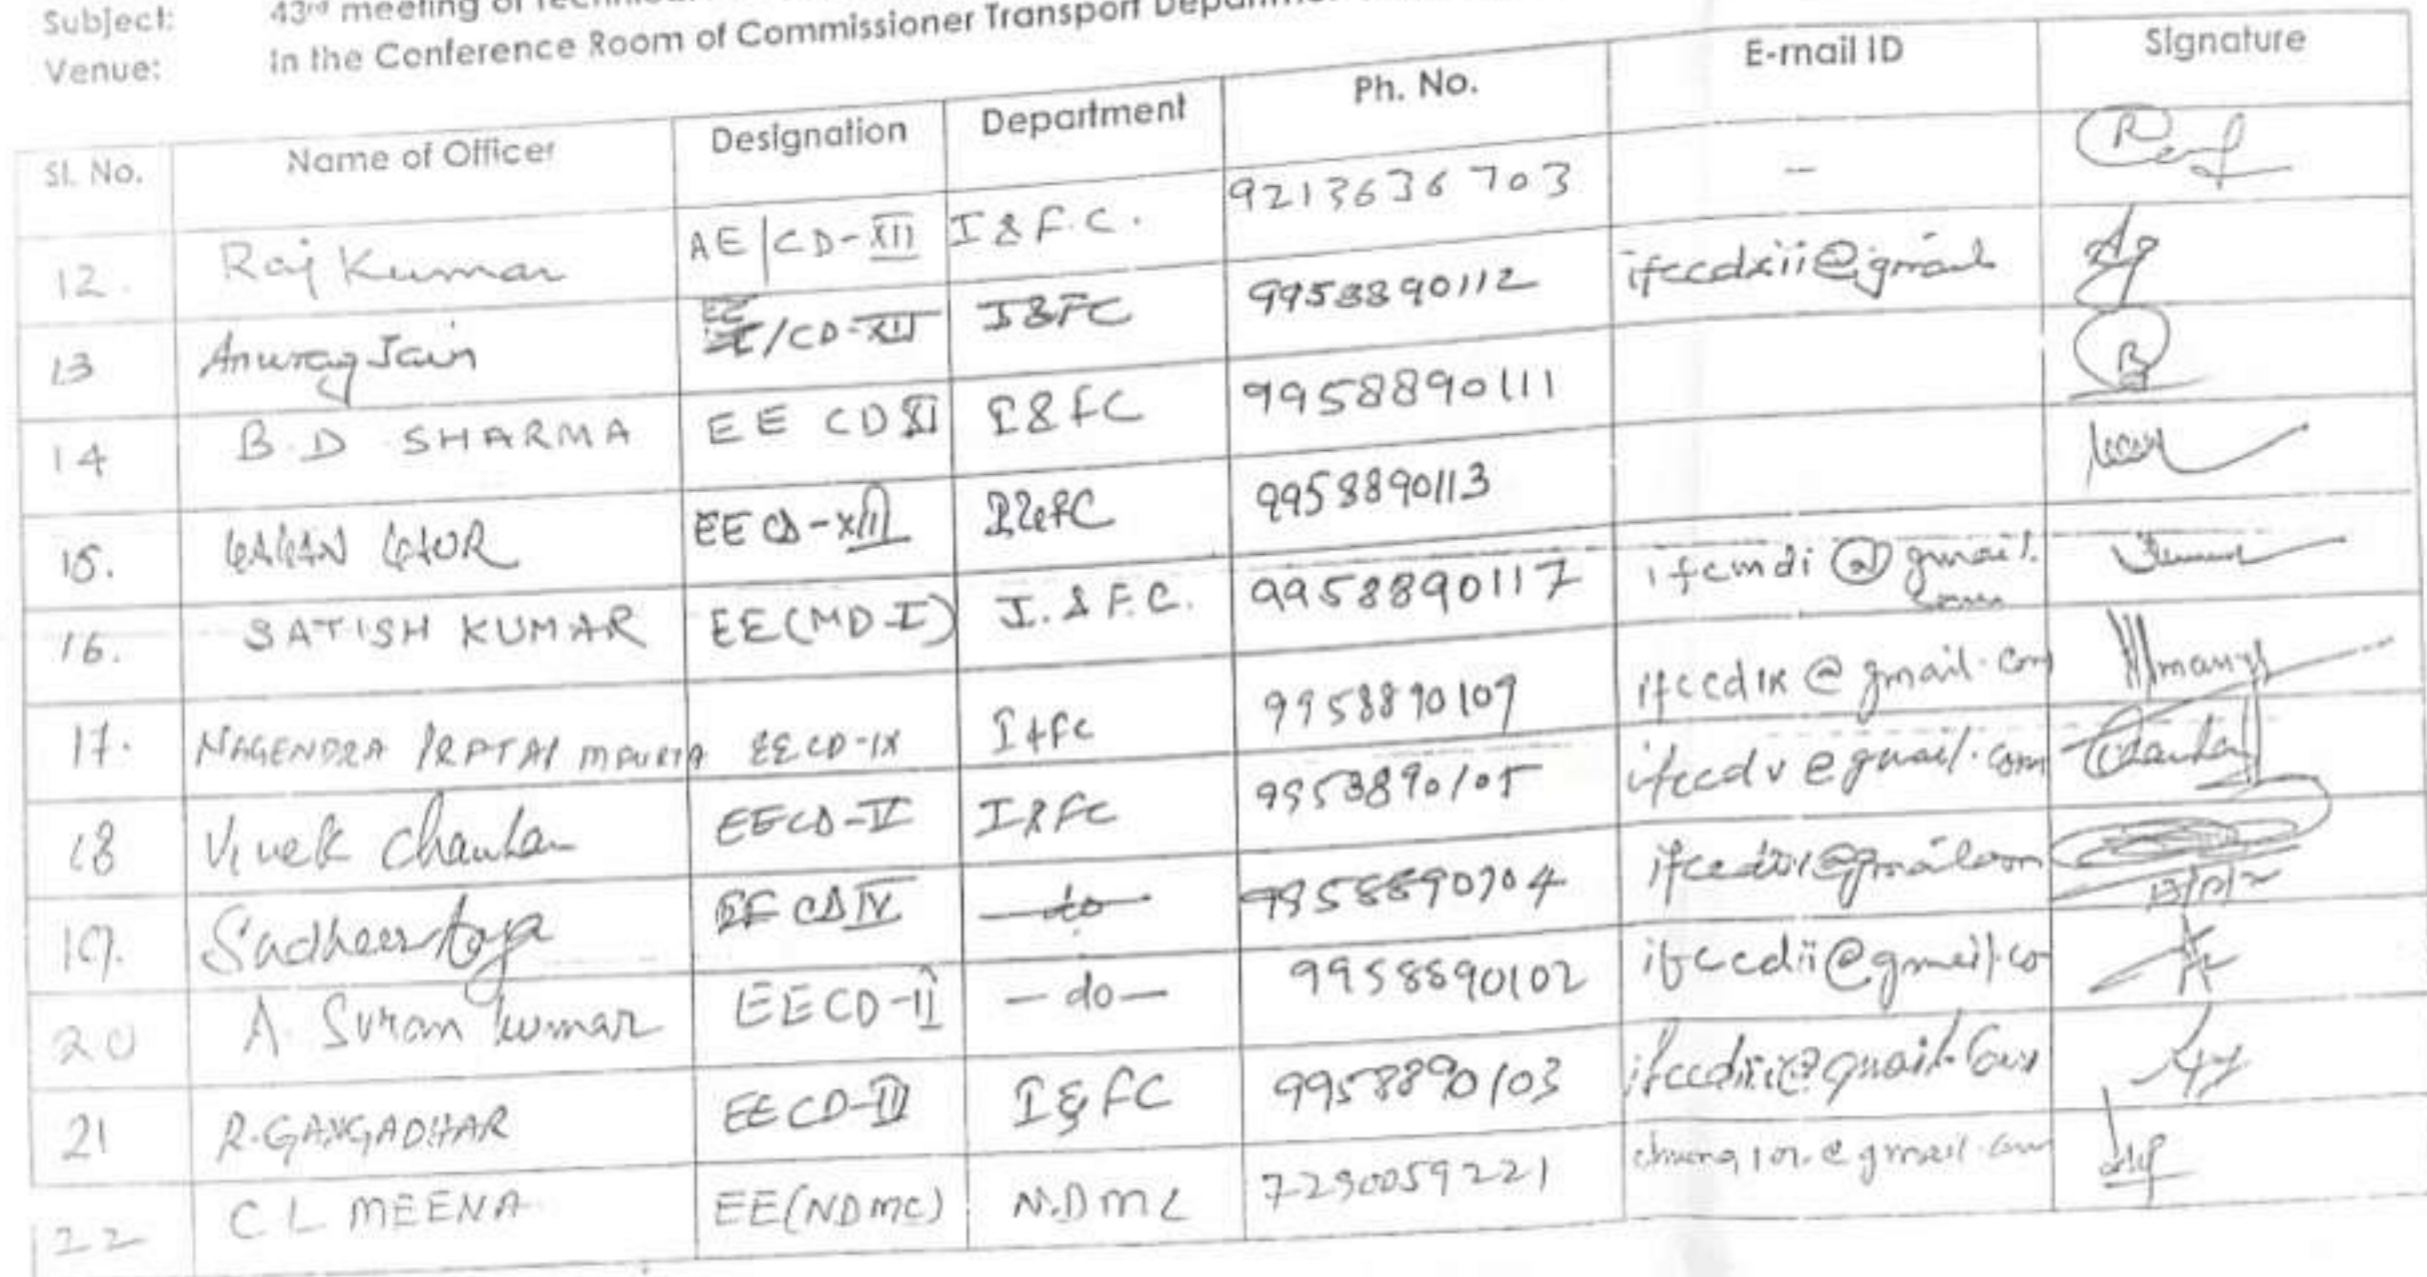 Subject: 43rd meeting of
Venue: in the Conference Room of Commissioner Transport
Sl. No. Name of Officer Designation Department Ph. No. E-mail ID Signature
12. Raj Kumar AE/CD-XII I & F.C. 9213636703 -
13 Anurag Jain EE/CD-XII I&FC 9958890112 ifccdxii@gmail
14 B.D SHARMA EE CD XI I&FC 9958890111
15. GAGAN GAUR EE CD-XIII I&FC 9958890113
16. SATISH KUMAR EE(MD-I) I.&F.C. 9958890117 ifcmdi@gmail.
com
17. NAGENDRA EE CD-IX I&FC 9958890109 ifccdix@gmail.com
18 Vivek Chauhan EECD-V I&FC 9958890105 ifccdv@gmail.com
19. Sudheer EE CD IV -do-
20 A. Kumar EECD-II -do- 9958890102 ifccdii@gmail.co
21 R.GANGADHAR EE CD-III I&FC 9958890103 ifccdiii@gmail.com
22 C L MEENA EE(NDMC) N.DMC